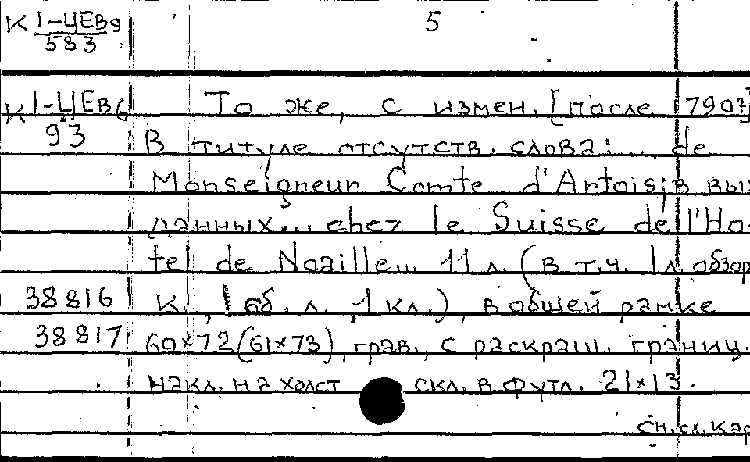 К 1-ЦЕв9 5
583
К 1-ЦЕв6 То же, с измен. [после 1790?]
93 В титуле отсутств. слова: ... de
Monseigneur Comte d'Artois; в вы-
данных... chez le Suisse de l'Ho-
tel de Noaille... 11 л. (в т.ч. 1 л. обзор.
38816 К., 1 об. л. 1 кл.), в общей рамке
38817 60×72 (61×73), грав., с раскраш. границ.
накл. на холст скл. в футл. 21×13.
сн. сл. кар